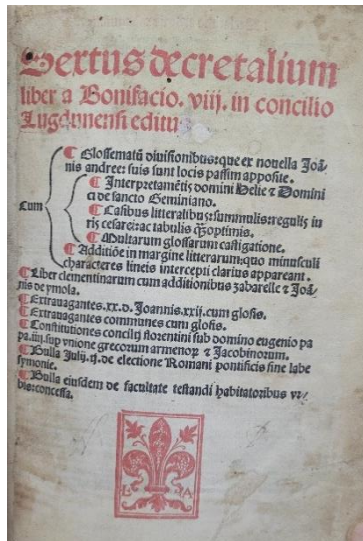 Sextus decretalium
liber a Bonifacio. viij. in concilio
Lugdunensi editus
Cum
¶ Glossematū diuisionibus: que ex nouella Joā/
nis andree: suis sunt locis passim apposite.
¶ Interpretamētis domini Helie ⁊ Domini
ci de sancto Geminiano.
¶ Casibus litteralibus: summulis: regulis iu
ris cesareis: ac tabulis optimis.
¶ Multarum glossarum castigatione.
¶ Additiōe in margine litterarum: quo minusculi
characteres lineis intercepti clarius appareant.
¶ Liber clementinarum cum additionibus zabarelle ⁊ Joā/
nis de ymola.
¶ Extrauagantes .xx. d. Joannis .xxij. cum glosis.
¶ Extrauagantes communes cum glosis.
¶ Constitutiones concilij florentini sub domino eugenio pa
pa .iiij. sup vnione grecorum armenoꝝ ⁊ Jacobinorum.
¶ Bulla Julij .ij. de electione Romani pontificis sine labe
symonie.
¶ Bulla eiusdem de facultate testandi habitatoribus vr/
bis: concessa.
L A